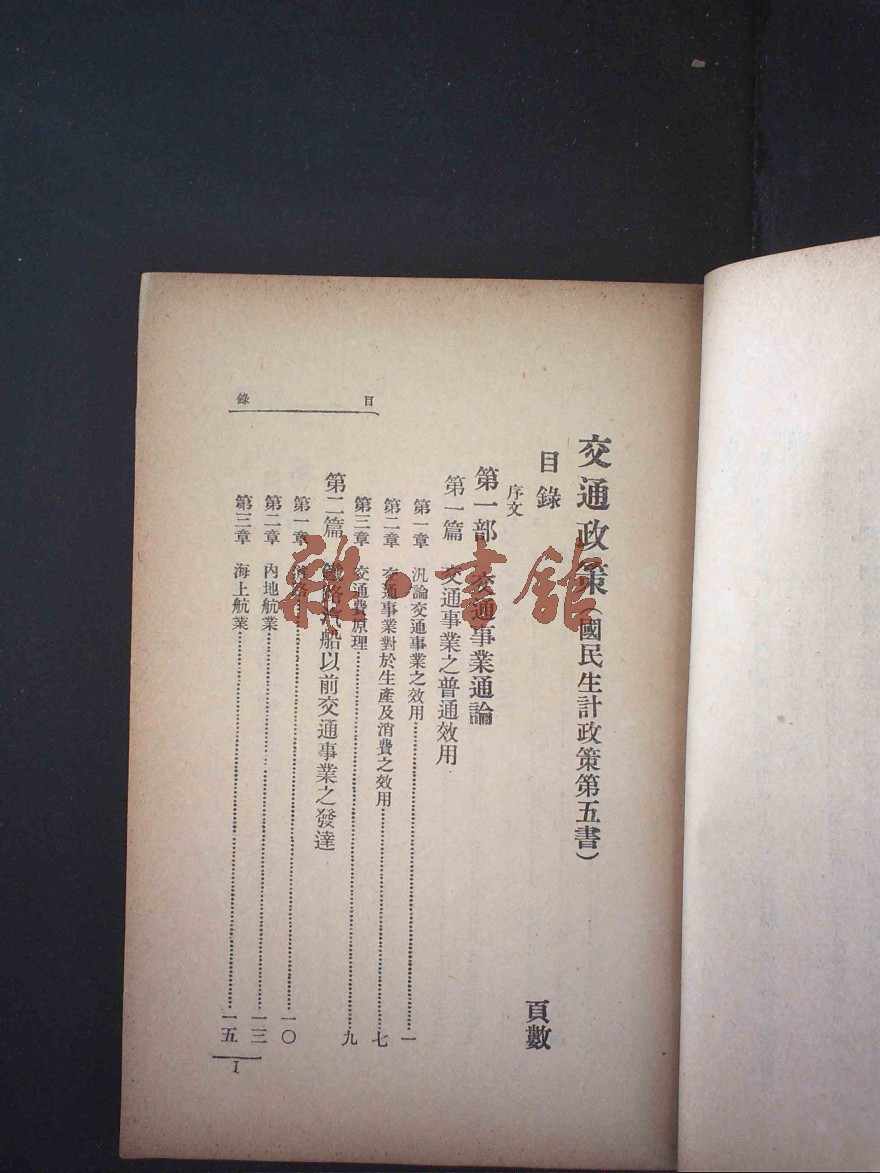 交通政策(國民生計政策第五書)
目錄 頁數
序文
第一部 交通事業通論
第一篇 交通事業之普通效用
第一章 汎論交通事業之效用 一
第二章 交通事業對於生產及消費之效用 七
第三章 交通費原理 九
第二篇 鐵路汽船以前交通事業之發達
第一章 道路 一〇
第二章 內地航業 一三
第三章 海上航業 一五
目錄
I
雜·書館